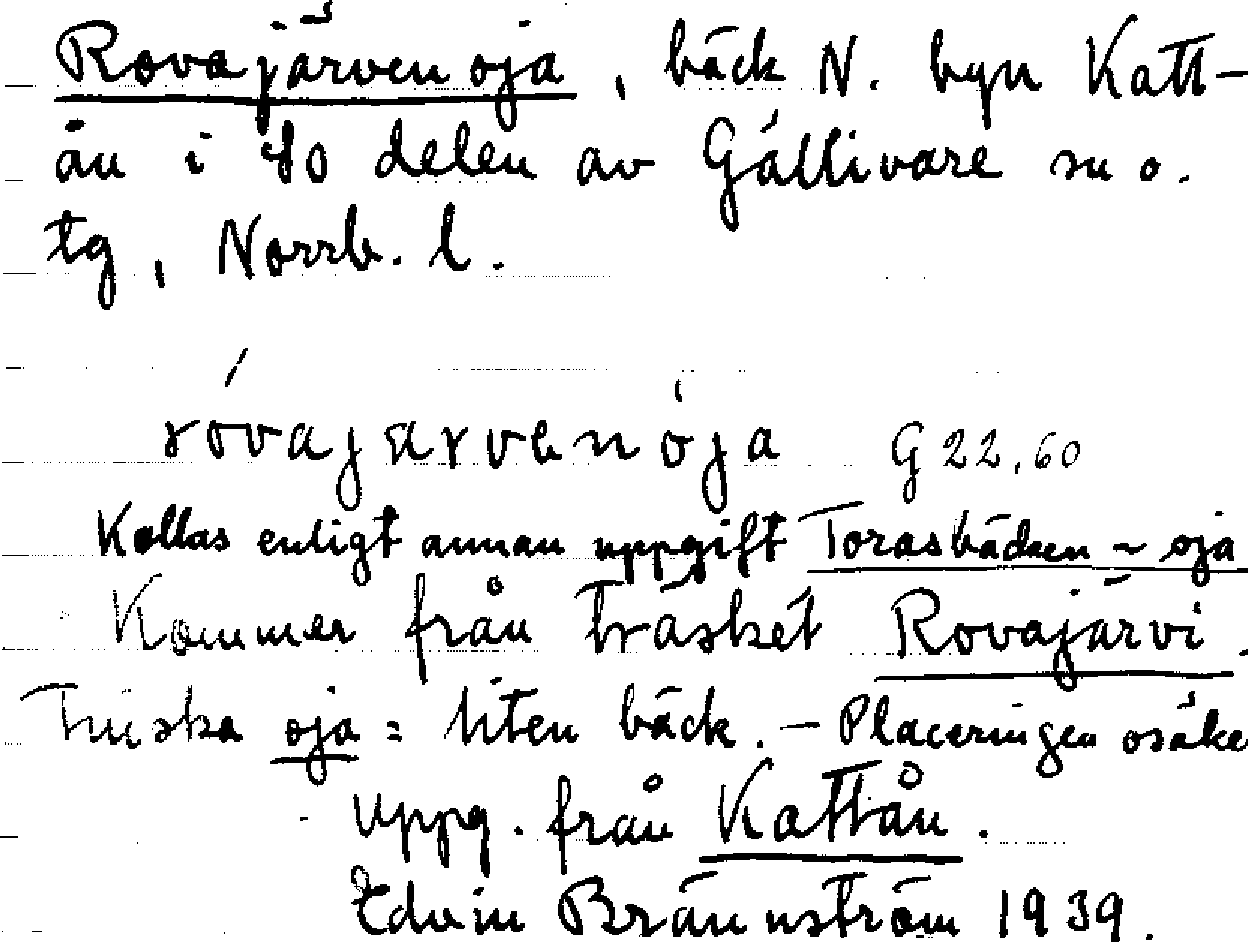 Rovajärvenoja, bäck N. byn Katt-
ån i SO delen av Gällivare sn o.
tg, Norrb. l.
róvajarvenója G 22,60
Kallas enligt annan uppgift Torasbäcken ~ oja
Kommer från träsket Rovajärvi.
Finska oja = liten bäck. - Placeringen osäker
Uppg. från Kattån.
Edvin Brännström 1939.